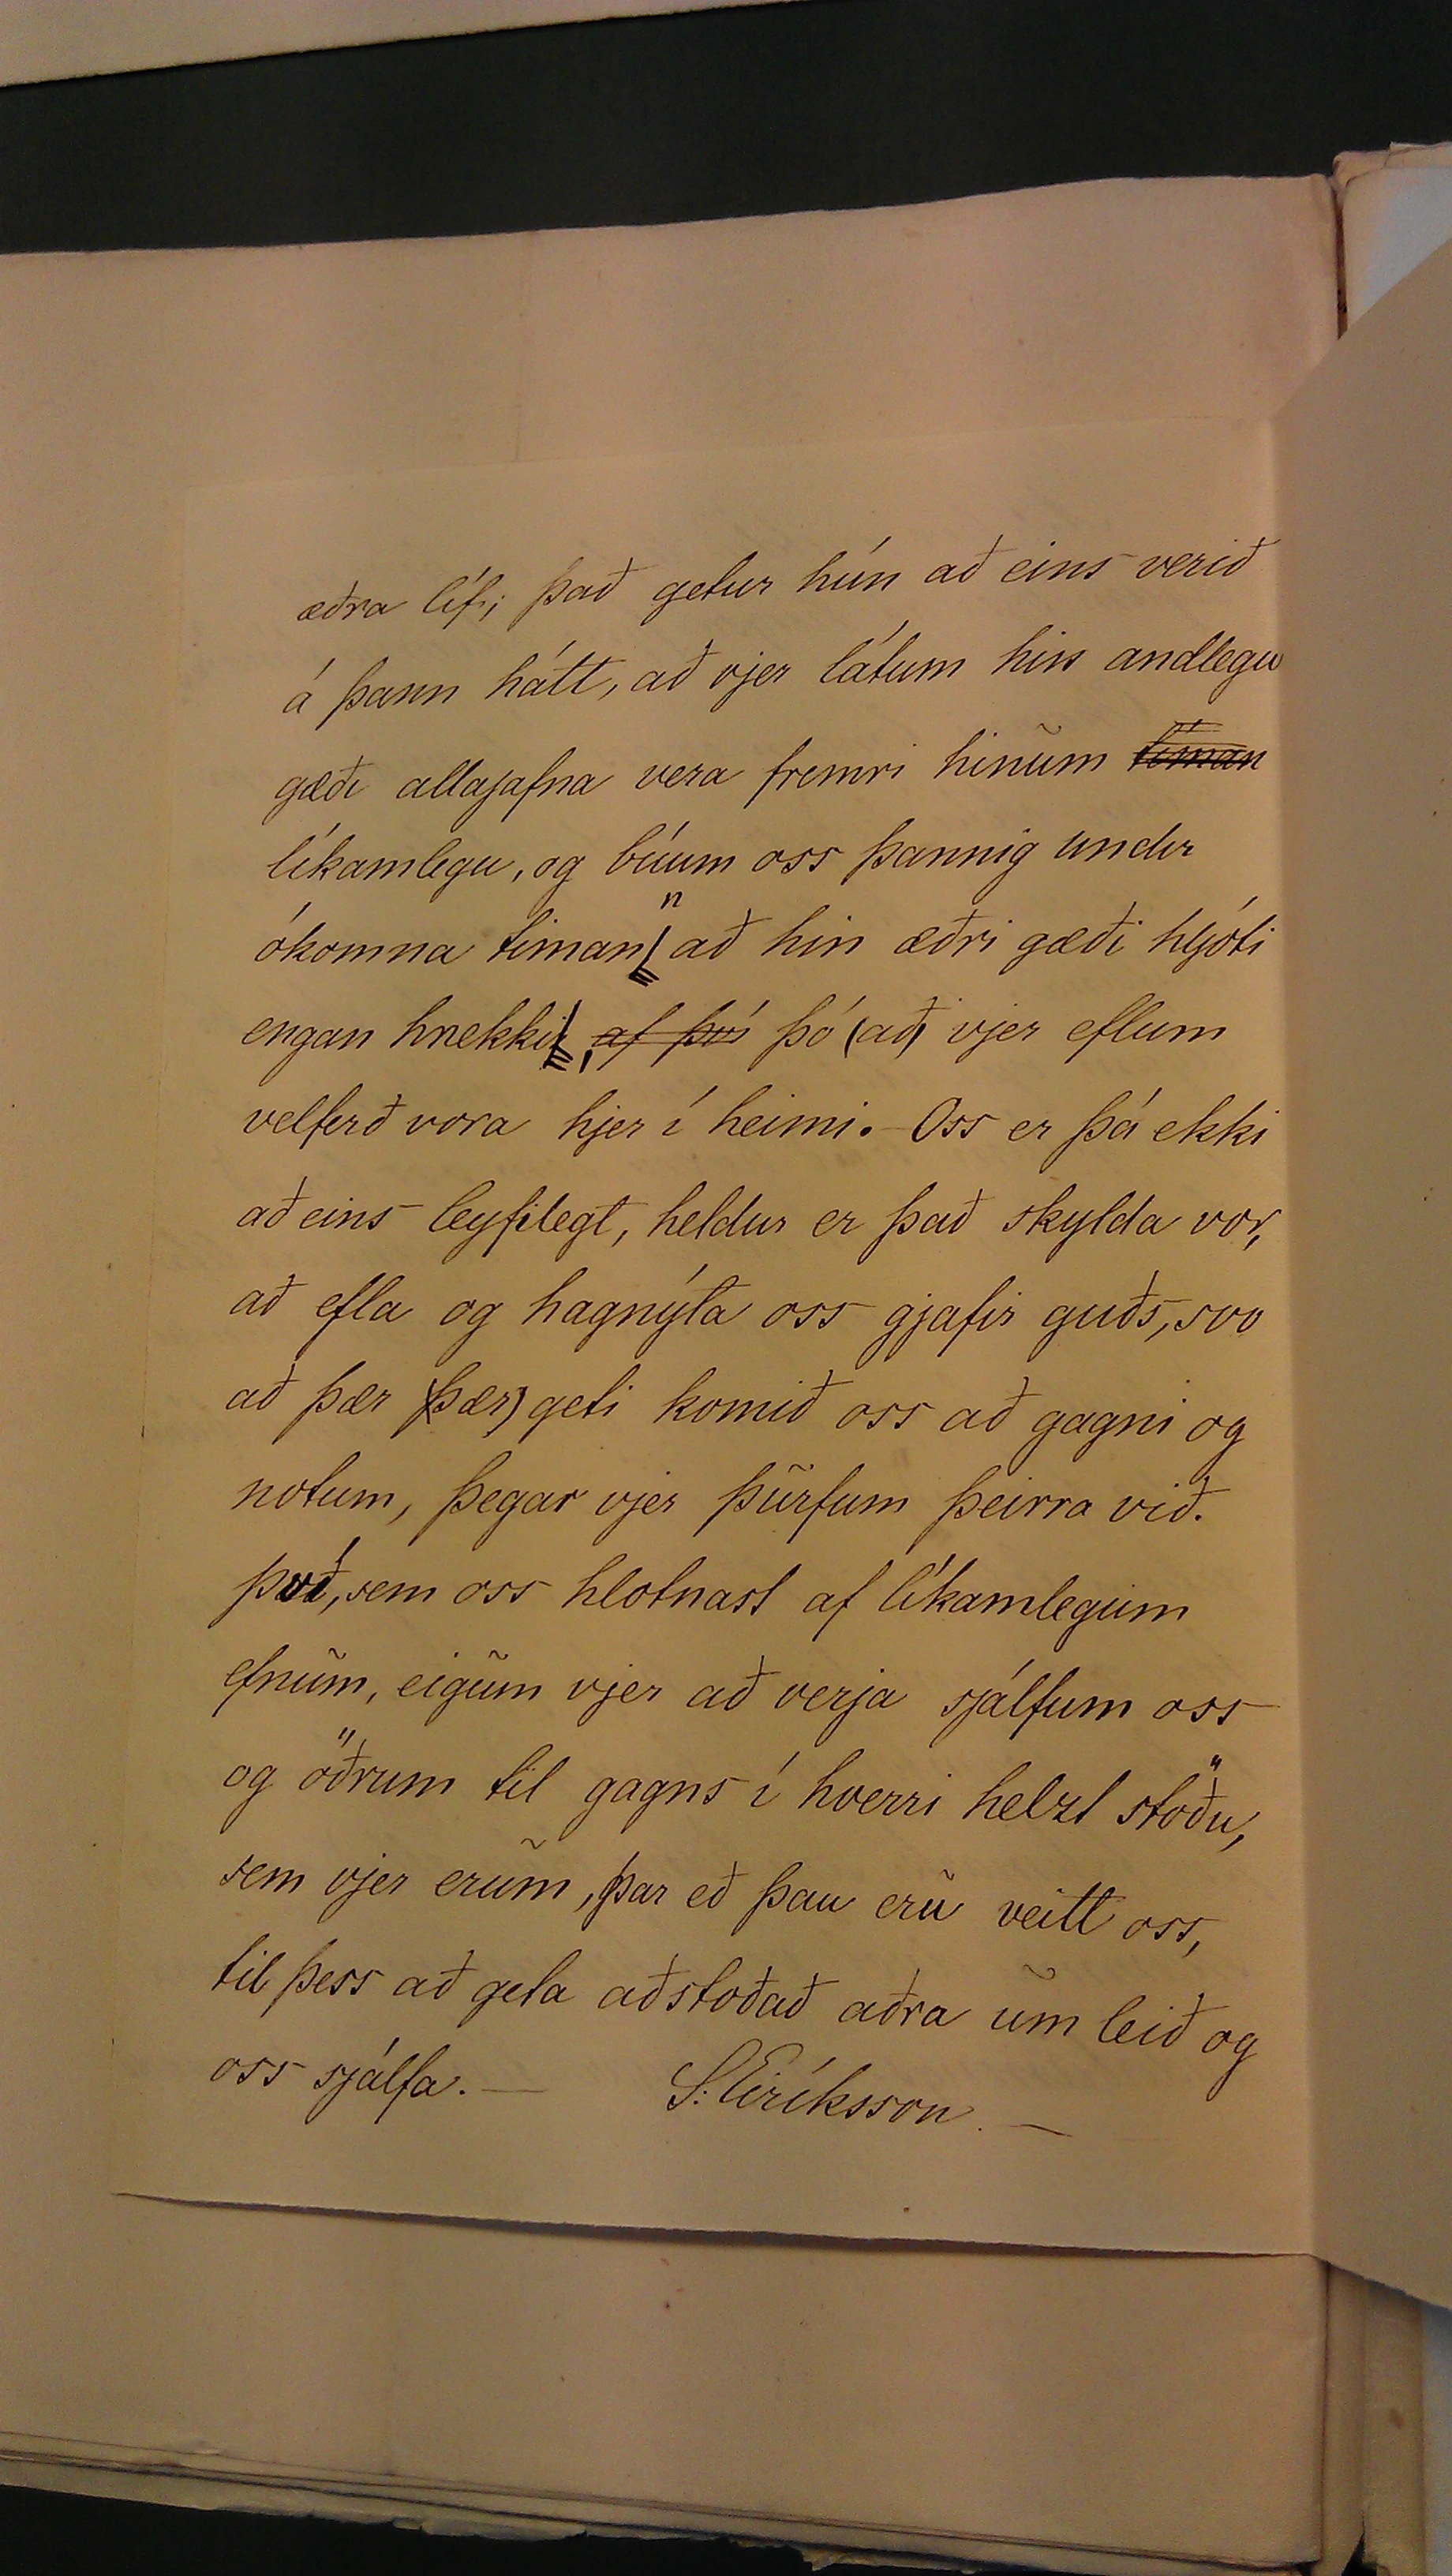 æðra líf; það getur hún að eins verið
á þann hátt, að vjer látum hin andlegu
gæði allajafna vera fremri hinum tíman
líkamlegu, og búum oss þannig undir
ókomna timann að hin æðri gæði hljóti
engan hnekkir, af því þó (að) vjer eflum
velferð vora hjer í heimi. Oss er þá ekki
að eins leyfilegt, heldur er það skylda vor,
að efla og hagnýta oss gjafir guðs, svo
að þær (þær) geti komið oss að gagni og
notum, þegar vjer þurfum þeirra við.
því, sem oss hlotnast af líkamlegum
efnum, eigum vjer að verja sjálfum oss
og öðrum til gagns í hverri helzt stöðu,
sem vjer erum, þar eð þau eru veitt oss,
til þess að geta aðstoðað aðra um leið og
oss sjálfa. — S. Eiríksson. —